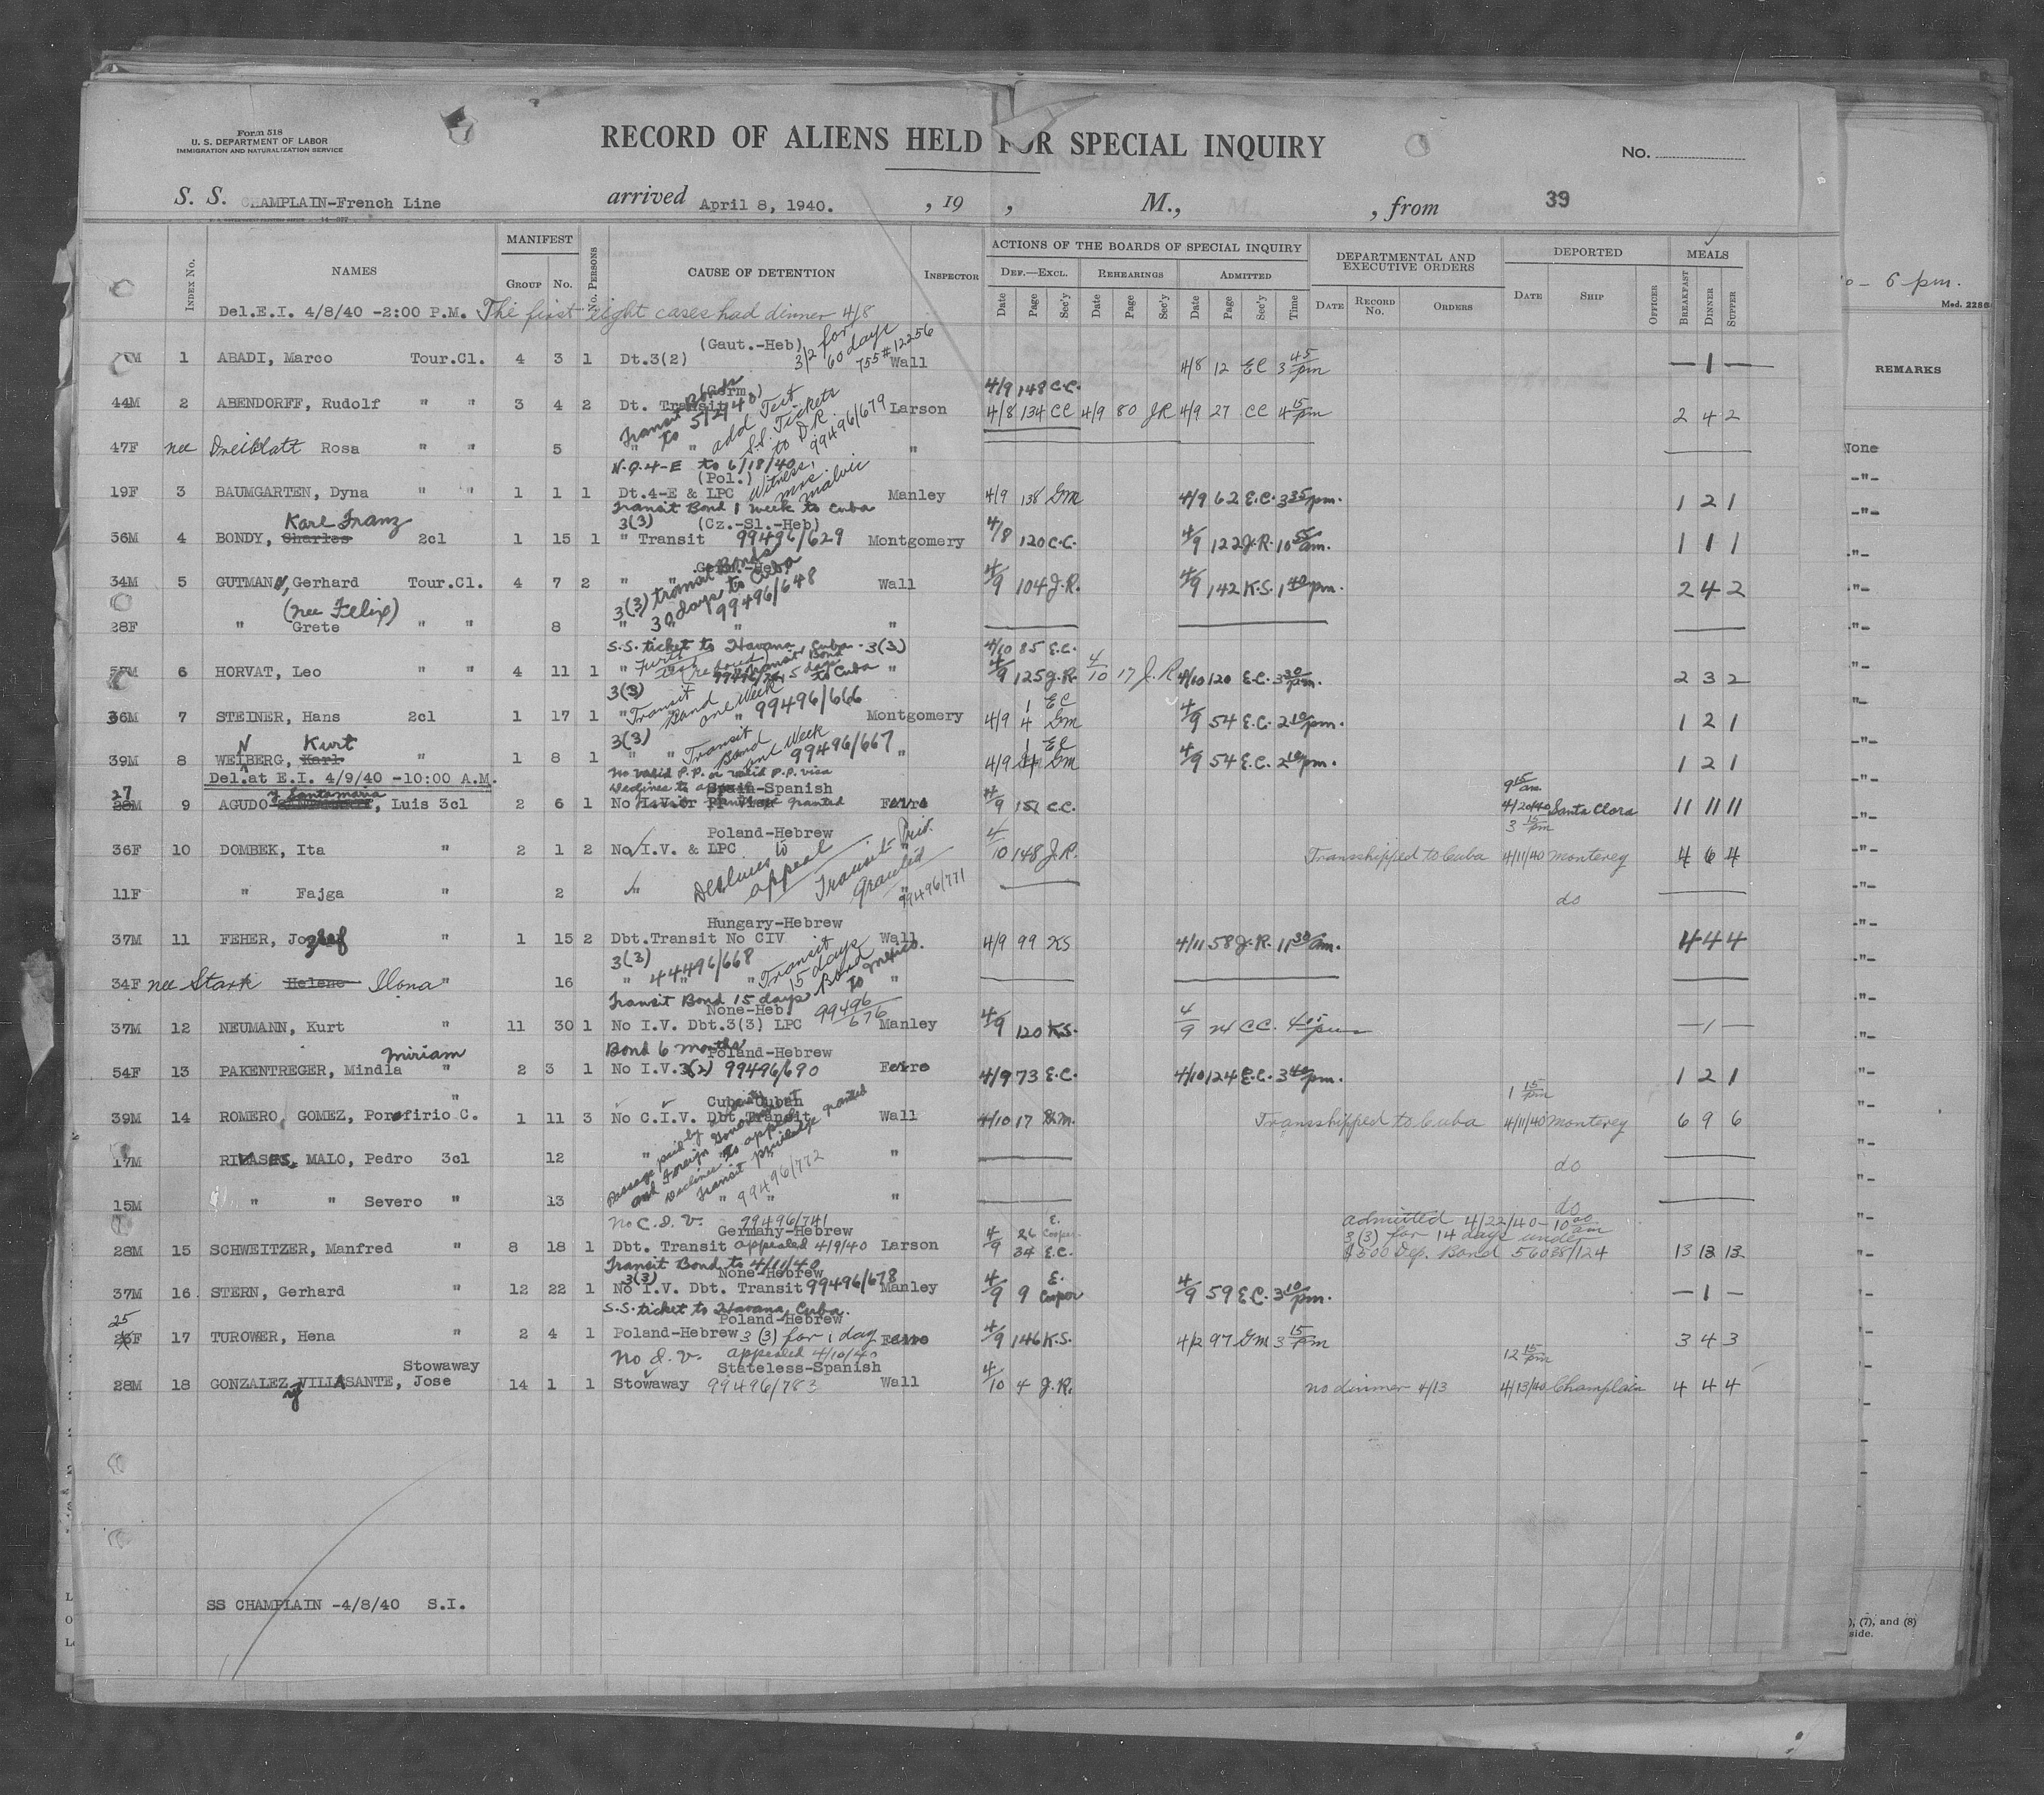 Form 518
U. S. DEPARTMENT OF LABOR
IMMIGRATION AND NATURALIZATION SERVICE
RECORD OF ALIENS HELD FOR SPECIAL INQUIRY
No.
S. S. CHAMPLAIN-French Line arrived April 8, 1940. , 19 , M., , from 39
INDEX No. NAMES MANIFEST GROUP No. No. PERSONS CAUSE OF DETENTION INSPECTOR
ACTIONS OF THE BOARDS OF SPECIAL INQUIRY DEF.—EXCL. REHEARINGS ADMITTED
Date Page Sec'y Date Page Sec'y Date Page Sec'y Time
DEPARTMENTAL AND EXECUTIVE ORDERS DATE RECORD No. ORDERS
DEPORTED DATE SHIP OFFICER
MEALS BREAKFAST DINNER SUPPER
6 pm.
Med. 2286
REMARKS
Del.E.I. 4/8/40 -2:00 P.M. The first eight cases had dinner 4/8
(Gaut.-Heb) 3/2 for 60 days 755#12256
1 ABADI, Marco Tour.Cl. 4 3 1 Dt.3(2) Wall 4/8 12 EC 3 45 pm — 1 —
4/9 148 C.C.
44M 2 ABENDORFF, Rudolf " " 3 4 2 Dt. Transit Larson 4/8 134 CC 4/9 80 JR 4/9 27 CC 4 15 pm 2 4 2
to 5/2/40 add Test S.S. Tickets to D.R. 99496/679
47F nee Dreiblatt Rosa " " 5 " " " None
N.Q.4-E to 6/18/40
(Pol.) Witness, Mrs Malvic
19F 3 BAUMGARTEN, Dyna " " 1 1 1 Dt.4-E & LPC Manley 4/9 138 Gm 4/9 62 E.C. 3 35 pm. 1 2 1
Transit Bond 1 week to Cuba
Karl Franz 3(3) (Cz.-Sl.-Heb)
36M 4 BONDY, Charles 2cl 1 15 1 " Transit 99496/629 Montgomery 4/8 120 C.C. 4/9 122 J.R. 10 55 am. 1 1 1
34M 5 GUTMANN, Gerhard Tour.Cl. 4 7 2 " " Wall 4/9 104 J.R. 4/9 142 K.S. 1 40 pm. 2 4 2
3(3) transit Bonds 30 days to Cuba 99496/648
(nee Felix)
28F " Grete " " 8 " " " "
S.S. ticket to Havana, Cuba - 3(3) 4/10 85 E.C.
6 HORVAT, Leo " " 4 11 1 " " 4/9 125 J.R. 4/10 17 J.R 4/10 120 E.C. 3 30 pm. 2 3 2
Transit Bond 5 days to Cuba
3(3) Transit Bond one Week 99496/666 1 EC
36M 7 STEINER, Hans 2cl 1 17 1 " " Montgomery 4/9 4 Gm 4/9 54 E.C. 2 10 pm. 1 2 1
3(3) Transit Bond one Week 99496/667 1 EC
N Kurt
39M 8 WEINBERG, Karl " 1 8 1 " " " 4/9 4 Gm 4/9 54 E.C. 2 10 pm. 1 2 1
Del.at E.I. 4/9/40 -10:00 A.M.
No valid P.P. or valid P.P. visa
Declines to appeal Spain-Spanish
y Santamaria 9 15 am.
27 9 AGUDO, Luis 3cl 2 6 1 No I.V. granted Ferro 4/9 152 C.C. 4/20/40 Santa Clara 11 11 11
3 15 pm
Poland-Hebrew
36F 10 DOMBEK, Ita " 2 1 2 No I.V. & LPC " 4/10 148 J.R. Transshipped to Cuba 4/11/40 Monterey 4 6 4
Declines to appeal Transit Priv. granted 99496/771
11F " Fajga " 2 " " do
Hungary-Hebrew
37M 11 FEHER, Jozsef " 1 15 2 Dbt.Transit No CIV Wall 4/9 99 KS 4/11 58 J.R. 11 30 am. 4 4 4
3(3) 44496/668 Transit 15 days Bond to Mexico
34F nee Stark Helene Ilona " 16 " " " "
Transit Bond 15 days 99496/676
None-Heb.
37M 12 NEUMANN, Kurt " 11 30 1 No I.V. Dbt.3(3) LPC Manley 4/9 120 K.S. 4/9 24 CC. 4 05 pm — 1 —
Bond 6 months Poland-Hebrew
Miriam
54F 13 PAKENTREGER, Mindla " 2 3 1 No I.V. 3(2) 99496/690 Ferro 4/9 73 E.C. 4/10 124 E.C. 3 40 pm. 1 2 1
Cuba-Cuban 1 15 pm
39M 14 ROMERO, GOMEZ, Porofirio C. " 1 11 3 No C.I.V. Dbt.Transit Wall 4/10 17 Gm. Transshipped to Cuba 4/11/40 Monterey 6 9 6
Passage paid by and Foreign Government Declines to appeal Transit privilege granted 99496/772
17M MALO, Pedro 3cl 12 " " do
15M " " Severo " 13 " " " do
No C.I.V. 99496/741
Germany-Hebrew
28M 15 SCHWEITZER, Manfred " 8 18 1 Dbt. Transit appealed 4/9/40 Larson 4/9 26 E. Cooper 34 E.C.
admitted 4/22/40 - 10 00 am
3(3) for 14 days under
$500 Dep. Bond 56038/124 13 13 13
Transit Bond to 4/11/40
3(3) None-Hebrew
37M 16 STERN, Gerhard " 12 22 1 No I.V. Dbt. Transit 99496/678 Manley 4/9 9 E. Cooper 4/9 59 E.C. 3 10 pm. — 1 —
S.S. ticket to Havana, Cuba.
Poland-Hebrew
25 17 TUROWER, Hena " 2 4 1 Poland-Hebrew 3(3) for 1 day Ferro 4/9 146 K.S. 4/12 97 Gm 3 15 pm 3 4 3
No I.V. appealed 4/10/40
Stowaway Stateless-Spanish 12 15 pm
28M 18 GONZALEZ y VILLASANTE, Jose 14 1 1 Stowaway 99496/783 Wall 4/10 4 J.R. no dinner 4/13 4/13/40 Champlain 4 4 4
SS CHAMPLAIN -4/8/40 S.I.
(7), and (8)
side.